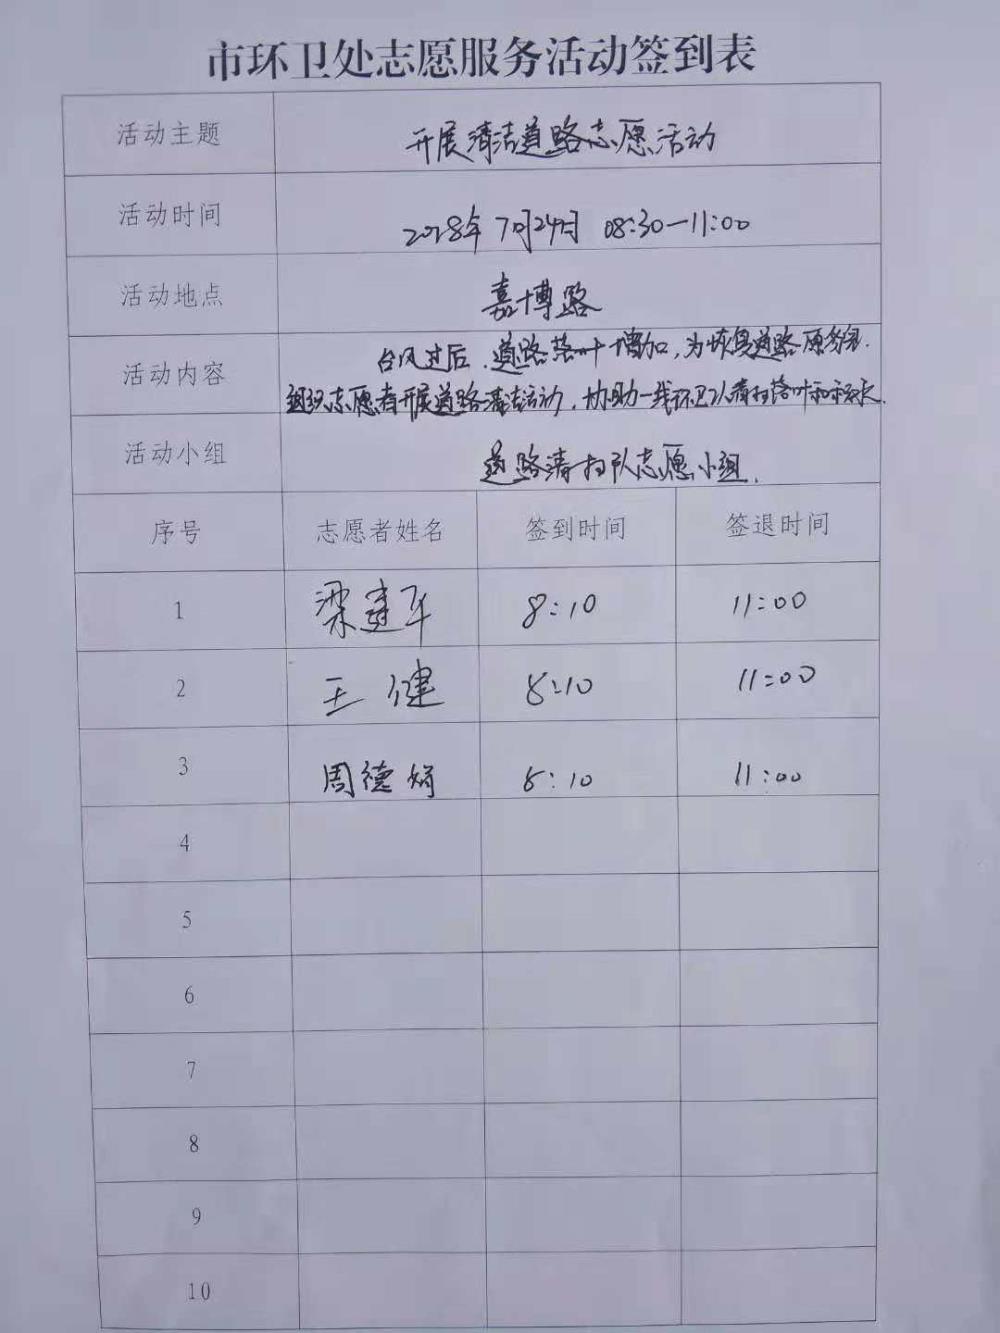 市环卫处志愿服务活动签到表
活动主题 开展清洁道路志愿活动
活动时间 2018年7月24日 08:30—11:00
活动地点 嘉博路
活动内容 台风过后,道路落叶增加,为恢复道路原
组织志愿者开展道路清洁活动,协助一线环卫工人清扫落叶和
活动小组 道路清扫队志愿小组.
序号 志愿者姓名 签到时间 签退时间
1 梁建军 8:10 11:00
2 王健 8:10 11:00
3 周德娟 8:10 11:00
4
5
6
7
8
9
10